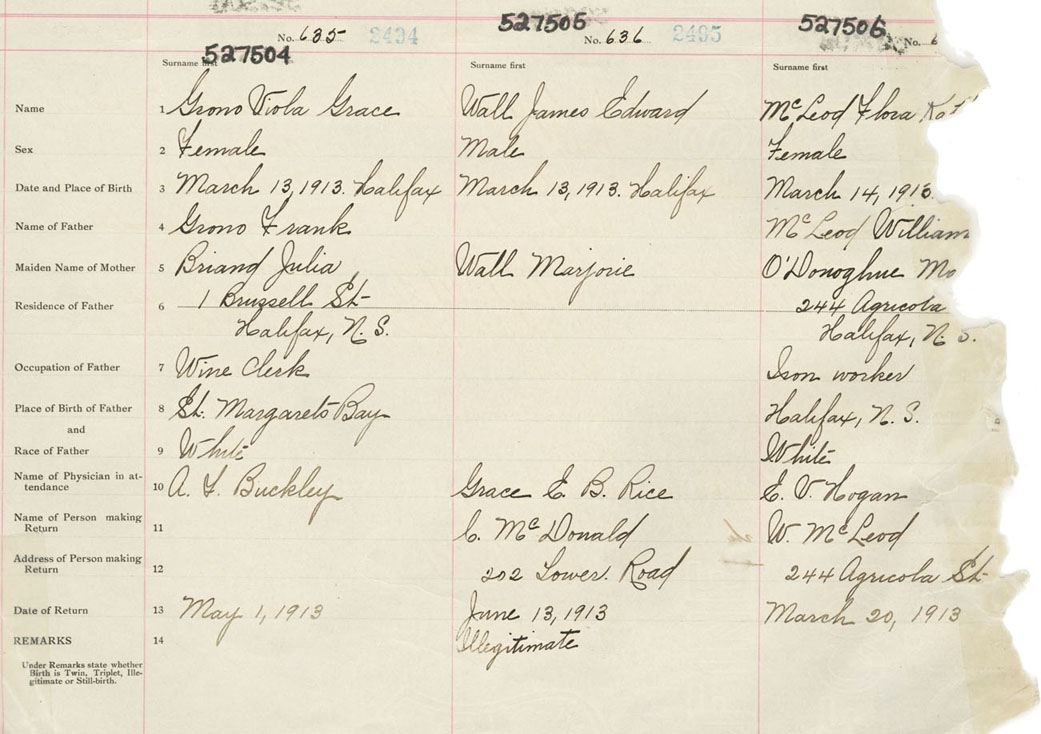 527504
527505
527506
No. 635 2434
No. 636 2435
No. 6
Surname first
Surname first
Surname first
Name 1 Grono Viola Grace Wall James Edward McLeod Flora
Sex 2 Female Male Female
Date and Place of Birth 3 March 13, 1913. Halifax March 13, 1913. Halifax March 14, 1913.
Name of Father 4 Grono Frank McLeod William
Maiden Name of Mother 5 Briand Julia Wall Marjorie O'Donoghue
Residence of Father 6 1 Brussell St. 244 Agricola
Halifax, N.S. Halifax, N.S.
Occupation of Father 7 Wine Clerk Iron worker
Place of Birth of Father 8 St. Margarets Bay Halifax, N.S.
and
Race of Father 9 White White
Name of Physician in at-
tendance 10 A. F. Buckley Grace E. B. Rice E. V. Hogan
Name of Person making
Return 11 C. McDonald W. McLeod
Address of Person making
Return 12 202 Lower Road 244 Agricola St.
Date of Return 13 May 1, 1913 June 13, 1913 March 20, 1913
REMARKS 14 Illegitimate
Under Remarks state whether
Birth is Twin, Triplet, Ille-
gitimate or Still-birth.